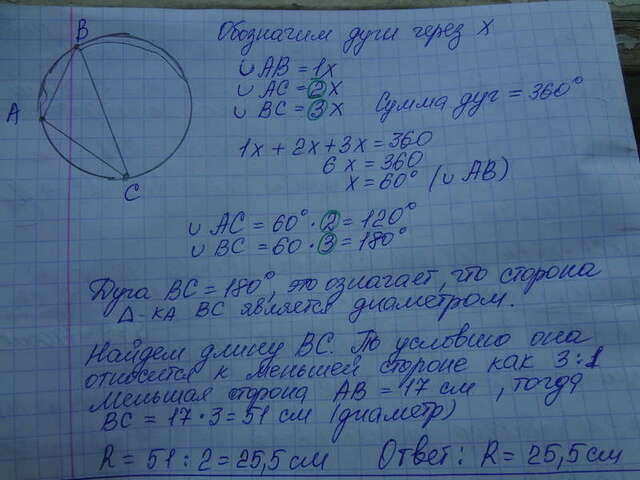 B
Обозначим дуги через x
∪ AB = 1x
∪ AC = 2x
∪ BC = 3x
Сумма дуг = 360°
A
1x + 2x + 3x = 360
6x = 360
x = 60° (∪ AB)
C
∪ AC = 60° · 2 = 120°
∪ BC = 60 · 3 = 180°
Дуга BC = 180°, это означает, что сторона
Δ-ка BC является диаметром.
Найдем длину BC. По условию она
относится к меньшей стороне как 3:1
Меньшая сторона AB = 17 см, тогда
BC = 17 · 3 = 51 см (диаметр)
R = 51 : 2 = 25,5 см
Ответ: R = 25,5 см